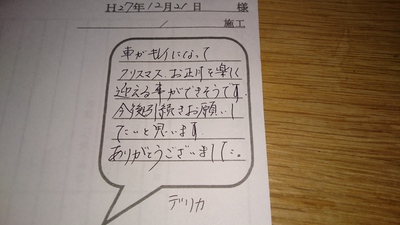 H27年12月21日 様
/ 施工
車がキレイになって
クリスマス、お正月を楽しく
迎える事ができそうです
今後引続きお願いし
たいと思います
ありがとうございました。
デリカ